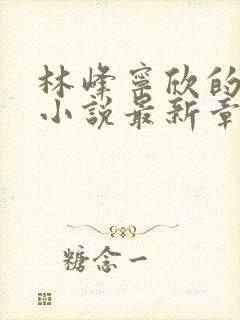 林峰寧欣的
小說最新章
糖念一